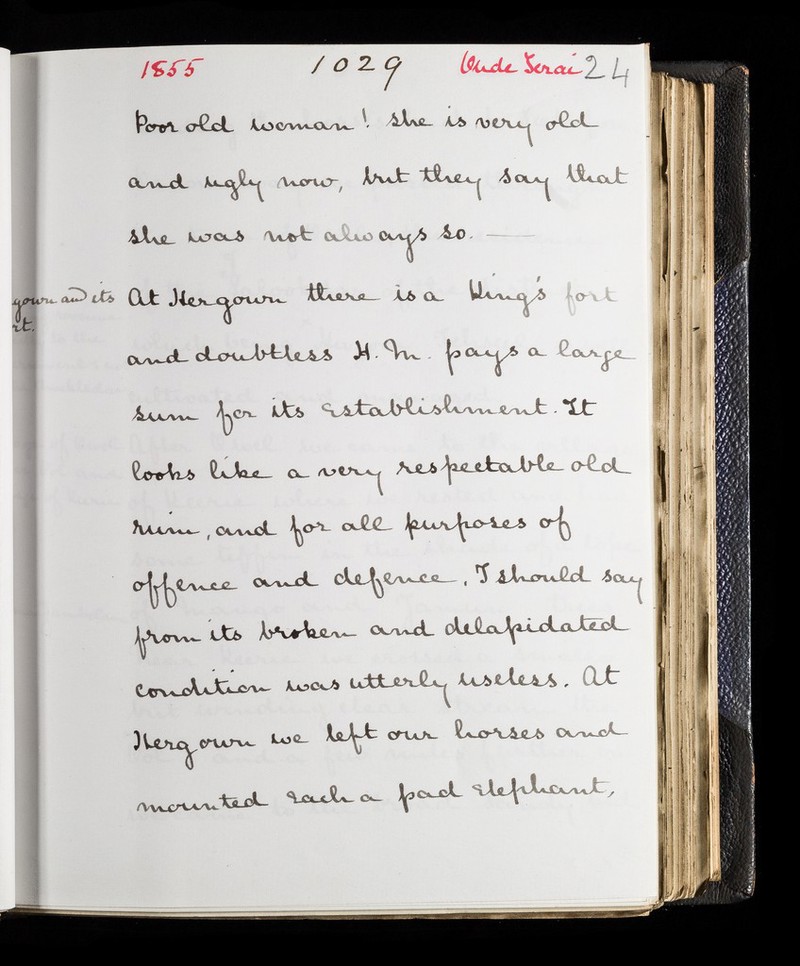 1855 1029 Oude Terai 24
Poor old woman! she is very old
and ugly now, but they say that
she was not always so. —
gown and its
rt.
At Hergown there is a King's fort
and doubtless H. M. pays a large
sum for its establishment. It
looks like a very respectable old
ruin, and for all purposes of
offence and defence, I should say
from its broken and delapidated
condition was utterly useless. At
Hergown we left our horses and
mounted each a pad elephant,